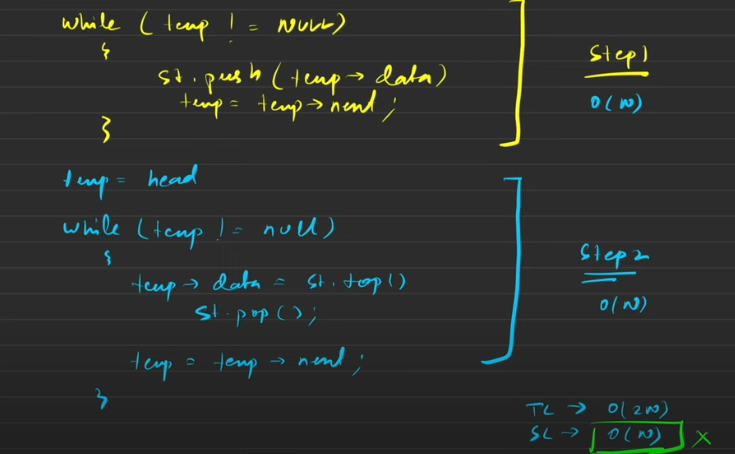 while ( temp ! = NULL)
{
st. push ( temp → data)
temp = temp → next ;
}
Step 1
O(N)
temp = head
while ( temp ! = null )
{
temp → data = st. top()
st. pop();
temp = temp → next ;
}
Step 2
O(N)
TC → O(2N)
SC → O(N) X